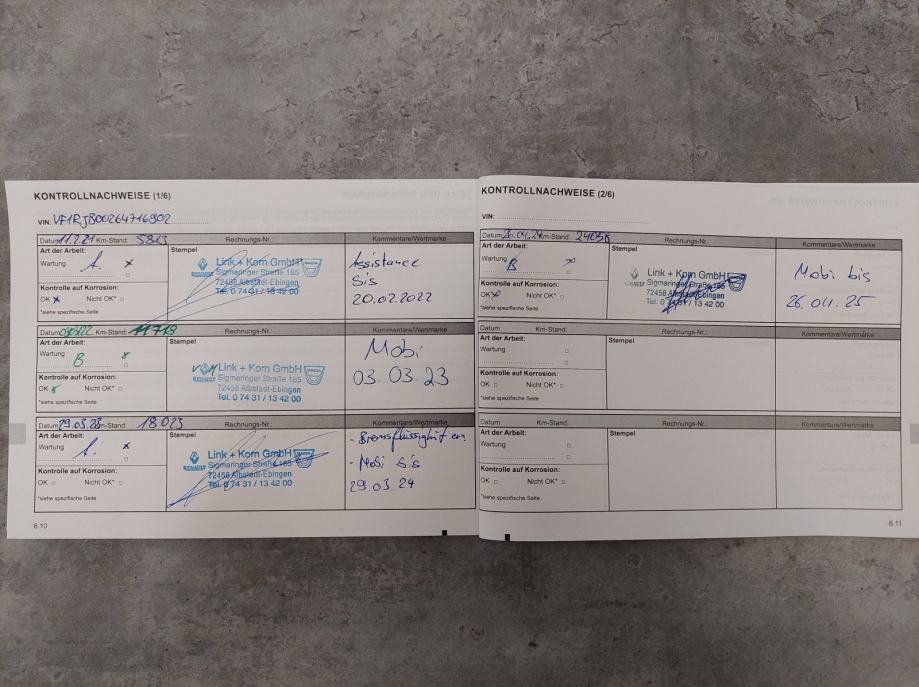 KONTROLLNACHWEISE (1/6)
VIN: VF1RJB00264716902
Datum: 11.2.21 Km-Stand: Rechnungs-Nr.: Kommentare/Wertmarke
Art der Arbeit: Stempel
Wartung A. x
Link + Korn GmbH
Sigmaringer Straße 165
72458 Albstadt-Ebingen
Tel. 0 74 31 / 13 42 00
RENAULT
DACIA
Assistance
bis
20.02.2022
Kontrolle auf Korrosion:
OK x Nicht OK*
*siehe spezifische Seite
Datum: Km-Stand: 11719 Rechnungs-Nr.: Kommentare/Wertmarke
Art der Arbeit: Stempel
Wartung B
Link + Korn GmbH
Sigmaringer Straße 165
72458 Albstadt-Ebingen
Tel. 0 74 31 / 13 42 00
RENAULT
DACIA
Mobi
03.03.23
Kontrolle auf Korrosion:
OK x Nicht OK*
*siehe spezifische Seite
Datum: 29.03.23 Km-Stand: 18023 Rechnungs-Nr.: Kommentare/Wertmarke
Art der Arbeit: Stempel
Wartung A. x
Link + Korn GmbH
Sigmaringer Straße 165
72458 Albstadt-Ebingen
Tel. 0 74 31 / 13 42 00
RENAULT
DACIA
- Bremsflüssigkeit ern
- Mobi bis
29.03.24
Kontrolle auf Korrosion:
OK Nicht OK*
*siehe spezifische Seite
6.10
KONTROLLNACHWEISE (2/6)
VIN:
Datum: 26.04.24 Km-Stand: Rechnungs-Nr.: Kommentare/Wertmarke
Art der Arbeit: Stempel
Wartung B
Link + Korn GmbH
Sigmaringer Straße 165
72458 Albstadt-Ebingen
Tel. 0 74 31 / 13 42 00
RENAULT
DACIA
Mobi bis
26.04.25
Kontrolle auf Korrosion:
OK x Nicht OK*
*siehe spezifische Seite
Datum: Km-Stand: Rechnungs-Nr.: Kommentare/Wertmarke
Art der Arbeit: Stempel
Wartung
Kontrolle auf Korrosion:
OK Nicht OK*
*siehe spezifische Seite
Datum: Km-Stand: Rechnungs-Nr.: Kommentare/Wertmarke
Art der Arbeit: Stempel
Wartung
Kontrolle auf Korrosion:
OK Nicht OK*
*siehe spezifische Seite
6.11